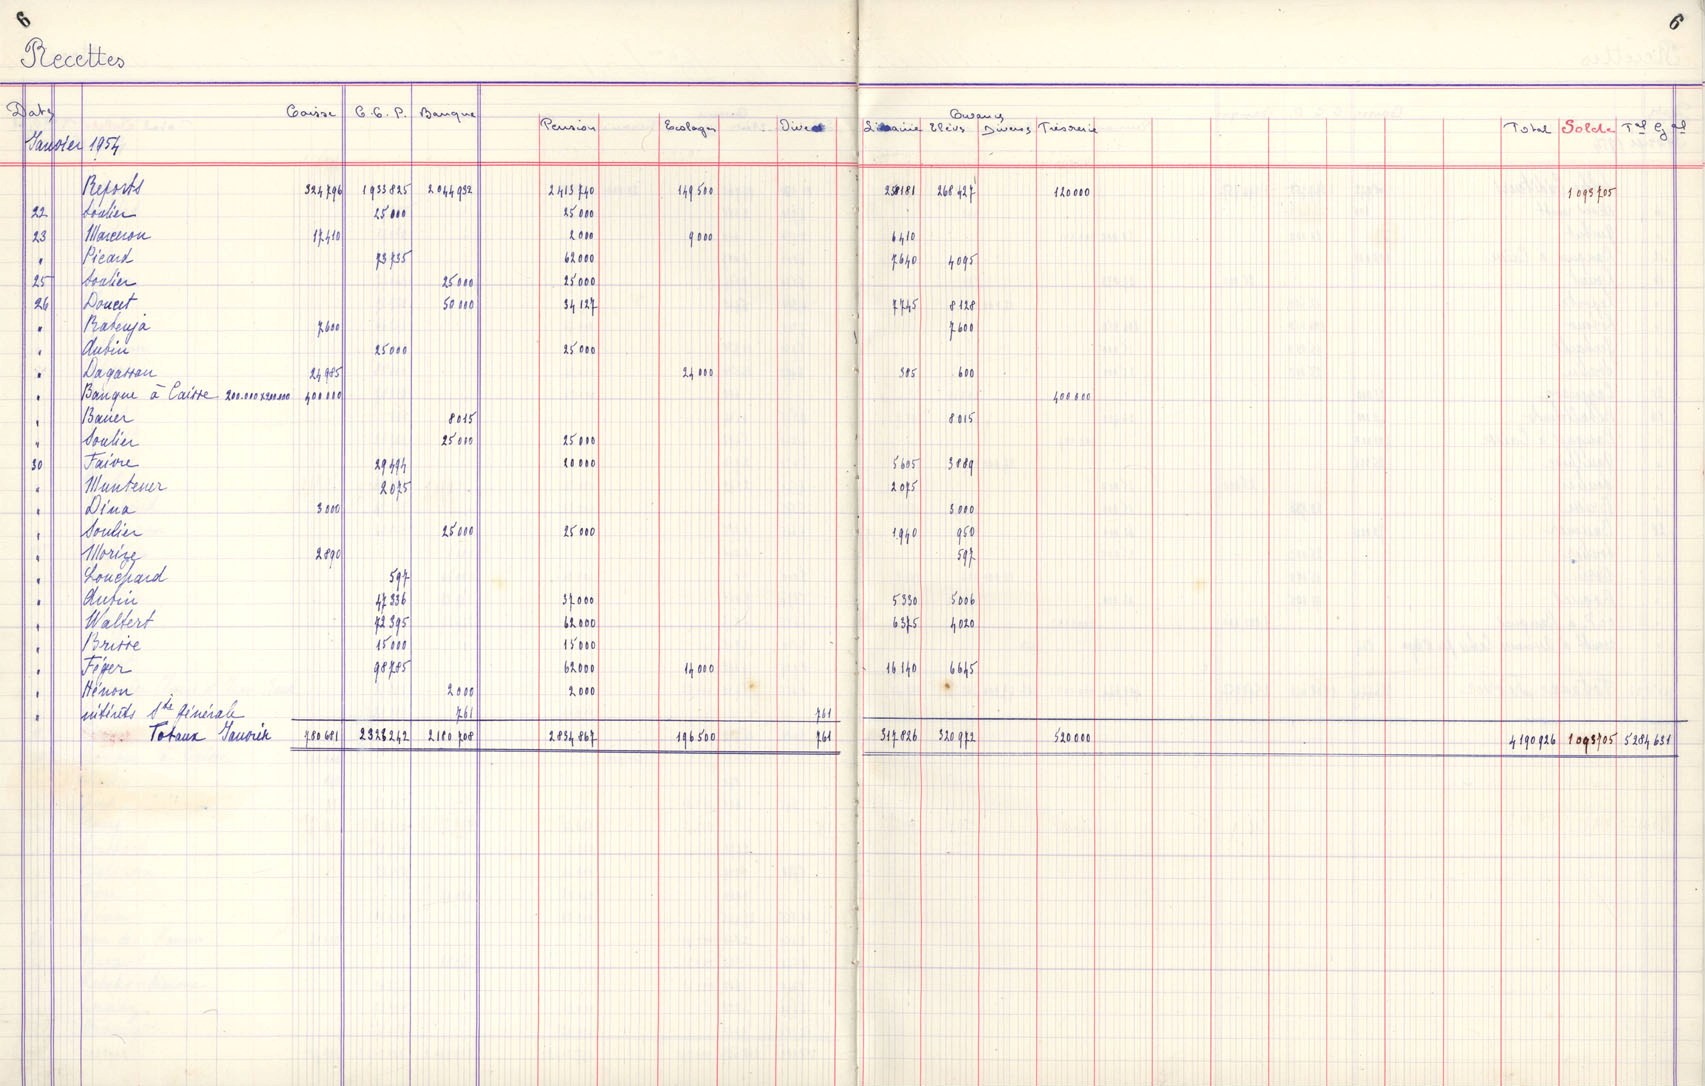 6 6
Recettes
Date Caisse C.C.P. Banque Pension Ecolages Divers Librairie Elèves Avances Divers Trésorerie Total Solde Tal Gal
Janvier 1954
Reports 324796 1933825 2044932 2413740 149500 238181 268427 120000 1093705
22 Soulier 25000 25000
23 Marceron 17410 2000 9000 6410
" Picard 73735 62000 7640 4095
25 Soulier 25000 25000
26 Doucet 50000 34127 7745 8128
" Ratenja 7600 7600
" Aubin 25000 25000
" Dagassan 24985 24000 385 600
" Banque à Caisse 200.000x200.000 400000 400000
" Bauer 8015 8015
" Soulier 25000 25000
30 Faivre 29494 20000 5605 3889
" Muntener 2075 2075
" Dina 3000 3000
" Soulier 25000 25000 1940 950
" Morize 2890 597
" Louchard 597
" Aubin 47336 37000 5330 5006
" Waltert 72395 62000 6375 4020
" Brisse 15000 15000
" Föyer 98785 62000 14000 16140 6645
" Hénon 2000 2000
" intérêts Sté Générale 761 761
Totaux Janvier 780681 2323242 2180708 2834867 196500 761 317826 320972 520000 4190926 1093705 5284631